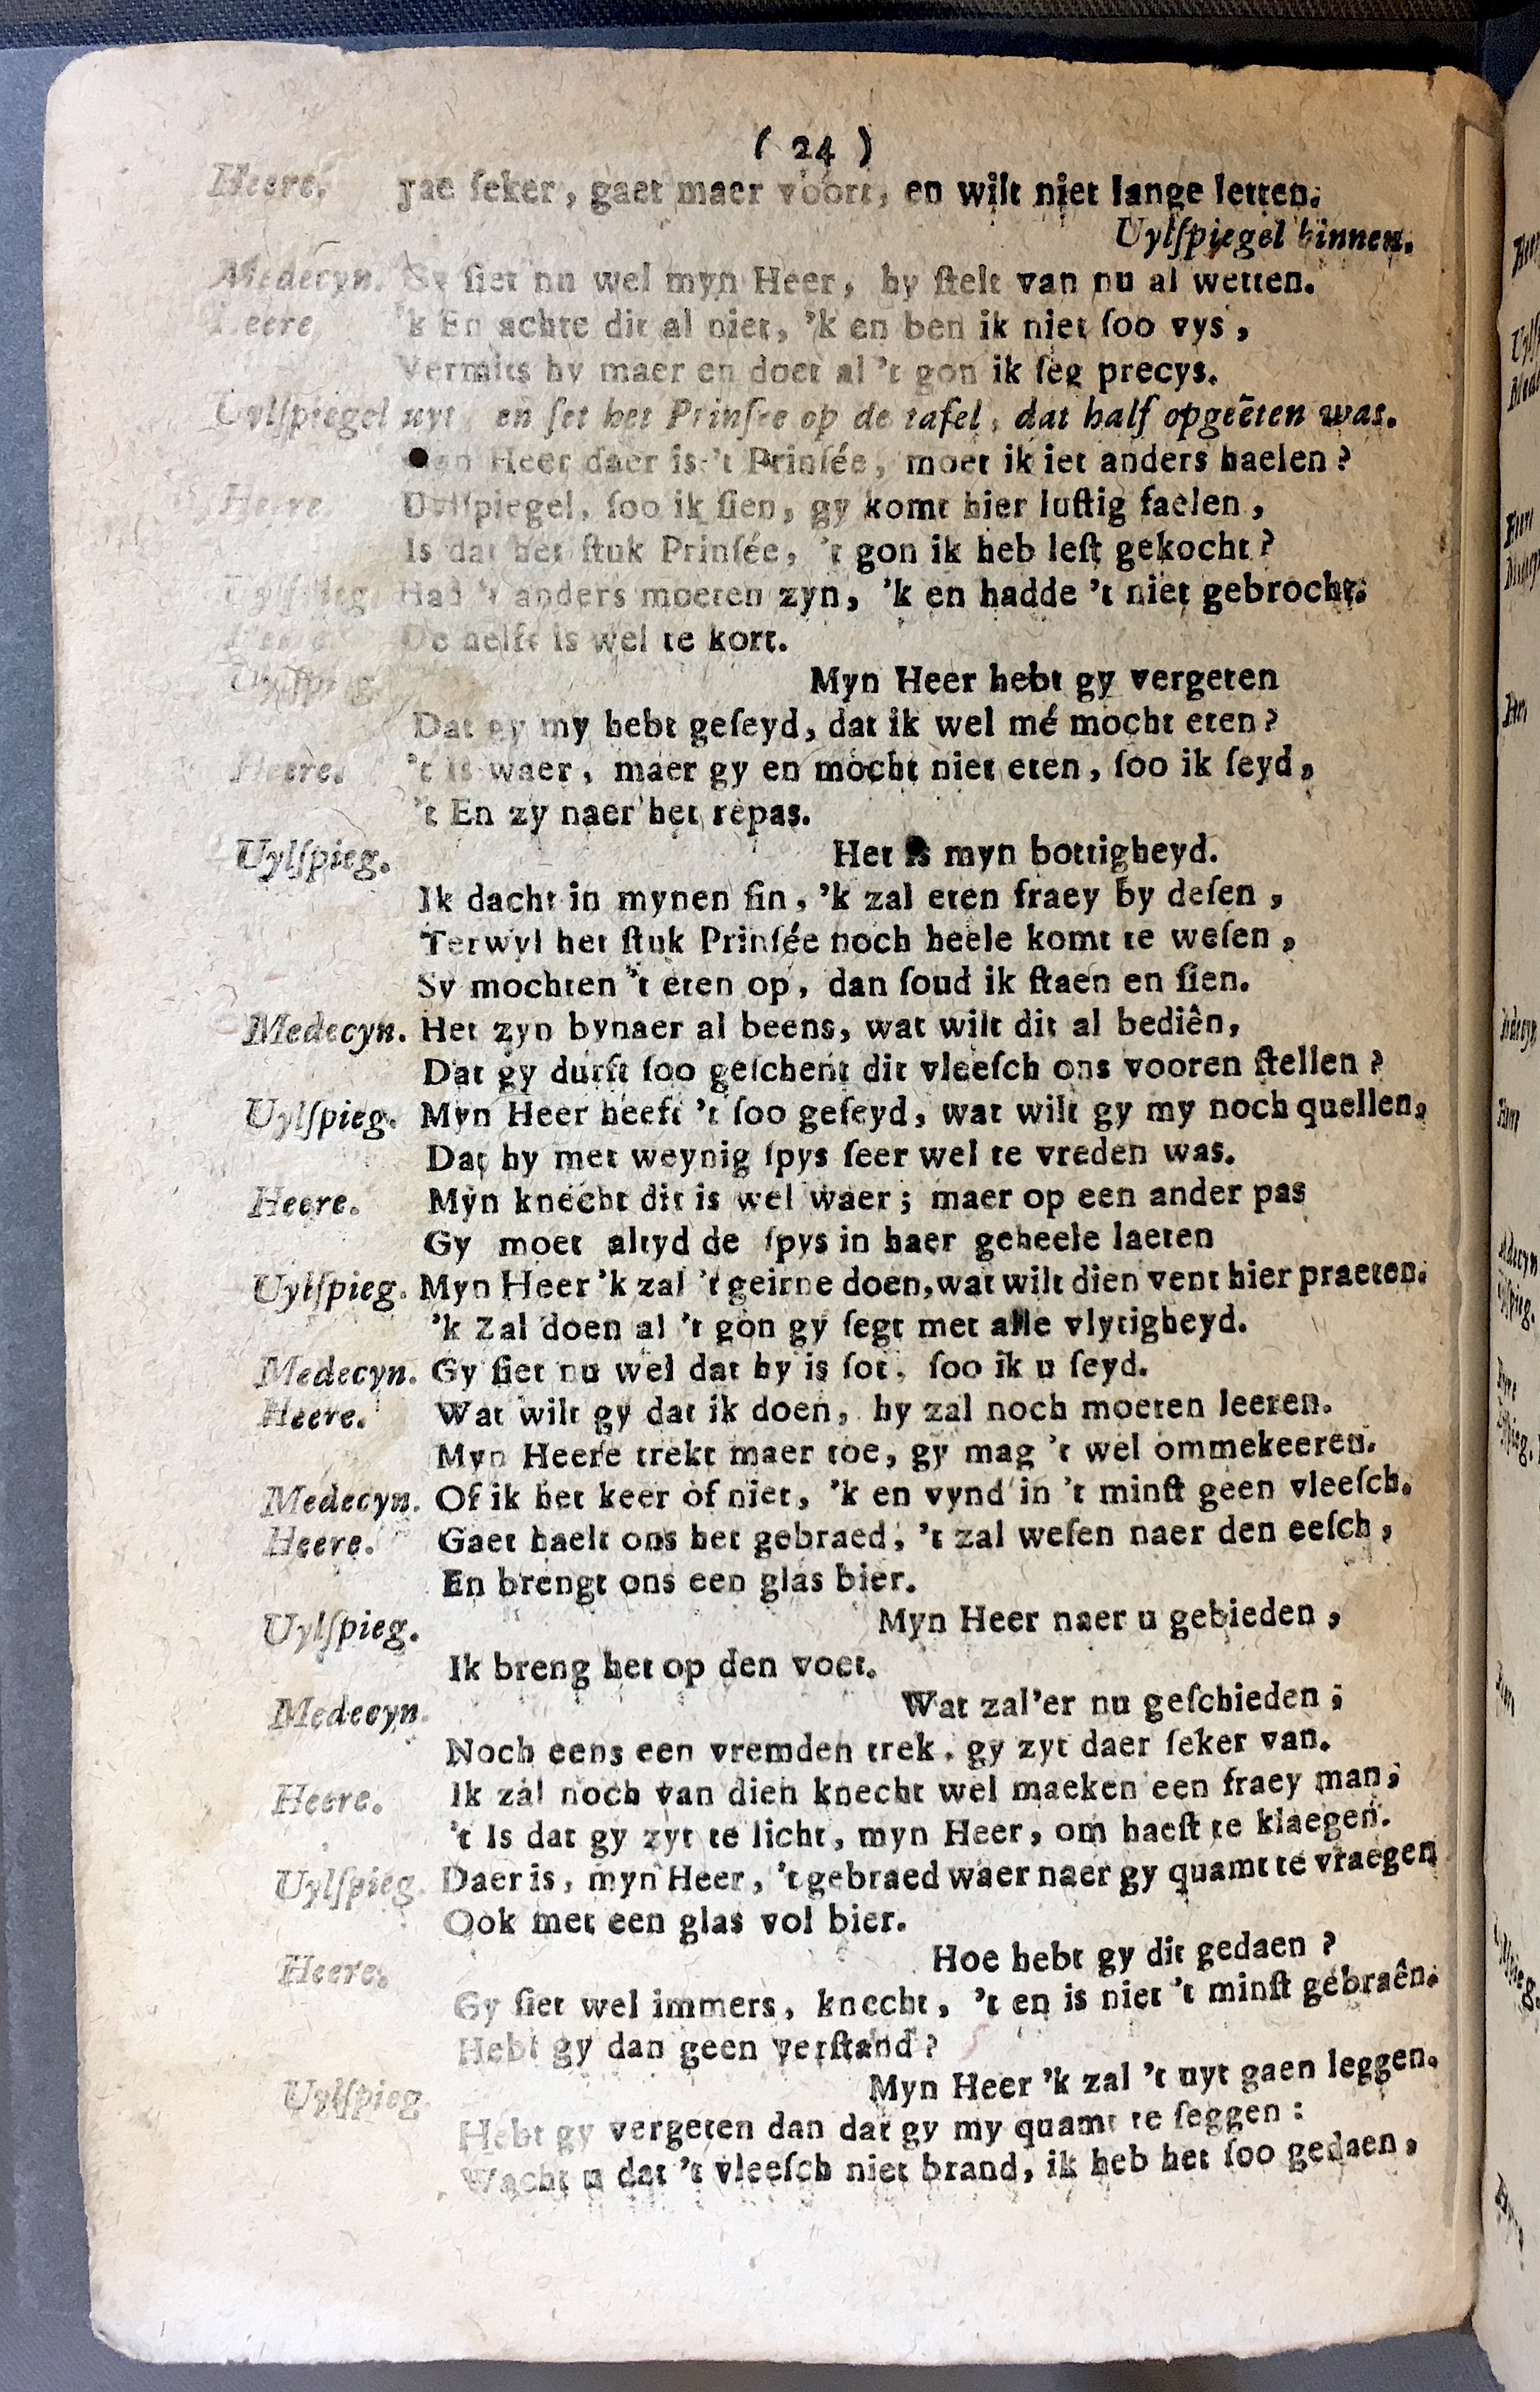 ( 24 )
Heere. Jae ſeker, gaet maer voort, en wilt niet lange letten.
Uylſpiegel binnen.
Medecyn. Gy ſiet nu wel myn Heer, hy ſtelt van nu al wetten.
Heere 'k En achte dit al niet, 'k en ben ik niet ſoo vys,
Vermits hy maer en doet al 't gon ik ſeg precys.
Uylſpiegel uyt en ſet het Prinſée op de tafel, dat half opgeëten was.
Heer daer is 't Prinſée, moet ik iet anders haelen?
Heere Uylſpiegel, ſoo ik ſien, gy komt hier luſtig faelen,
Is dat het ſtuk Prinſée, 't gon ik heb leſt gekocht?
Uylſpieg Had 't anders moeten zyn, 'k en hadde 't niet gebrocht.
Heere De helft is wel te kort.
Uylſpieg
Myn Heer hebt gy vergeten
Dat gy my hebt geſeyd, dat ik wel mé mocht eten?
Heere. 't Is waer, maer gy en mocht niet eten, ſoo ik ſeyd,
't En zy naer het repas.
Uylſpieg. Het is myn bottigheyd.
Ik dacht in mynen ſin, 'k zal eten fraey by deſen,
Terwyl het ſtuk Prinſée noch heele komt te weſen,
Sy mochten 't eten op, dan ſoud ik ſtaen en ſien.
Medecyn. Het zyn bynaer al beens, wat wilt dit al bediên,
Dat gy durft ſoo geſchent dit vleeſch ons vooren ſtellen?
Uylſpieg. Myn Heer heeft 't ſoo geſeyd, wat wilt gy my noch quellen,
Dat hy met weynig ſpys ſeer wel te vreden was.
Heere. Myn knecht dit is wel waer; maer op een ander pas
Gy moet altyd de ſpys in haer geheele laeten
Uylſpieg. Myn Heer 'k zal 't geirne doen, wat wilt dien vent hier praeten.
'k Zal doen al 't gon gy ſegt met alle vlytigheyd.
Medecyn. Gy ſiet nu wel dat hy is ſot, ſoo ik u ſeyd.
Heere. Wat wilt gy dat ik doen, hy zal noch moeten leeren.
Myn Heere trekt maer toe, gy mag 't wel ommekeeren.
Medecyn. Of ik het keer of niet, 'k en vynd in 't minſt geen vleeſch.
Heere. Gaet haelt ons het gebraed, 't zal weſen naer den eeſch,
En brengt ons een glas bier.
Uylſpieg. Myn Heer naer u gebieden,
Ik breng het op den voet.
Medecyn. Wat zal'er nu geſchieden;
Noch eens een vremden trek, gy zyt daer ſeker van.
Heere. Ik zal noch van dien knecht wel maeken een fraey man;
't Is dat gy zyt te licht, myn Heer, om haeſt te klaegen.
Uylſpieg. Daer is, myn Heer, 't gebraed waer naer gy quamt te vraegen
Ook met een glas vol bier.
Heere. Hoe hebt gy dit gedaen?
Gy ſiet wel immers, knecht, 't en is niet 't minſt gebraên.
Hebt gy dan geen verſtand?
Uylſpieg. Myn Heer 'k zal 't uyt gaen leggen.
Hebt gy vergeten dan dat gy my quamt te ſeggen:
Wacht u dat 't vleeſch niet brand, ik heb het ſoo gedaen,